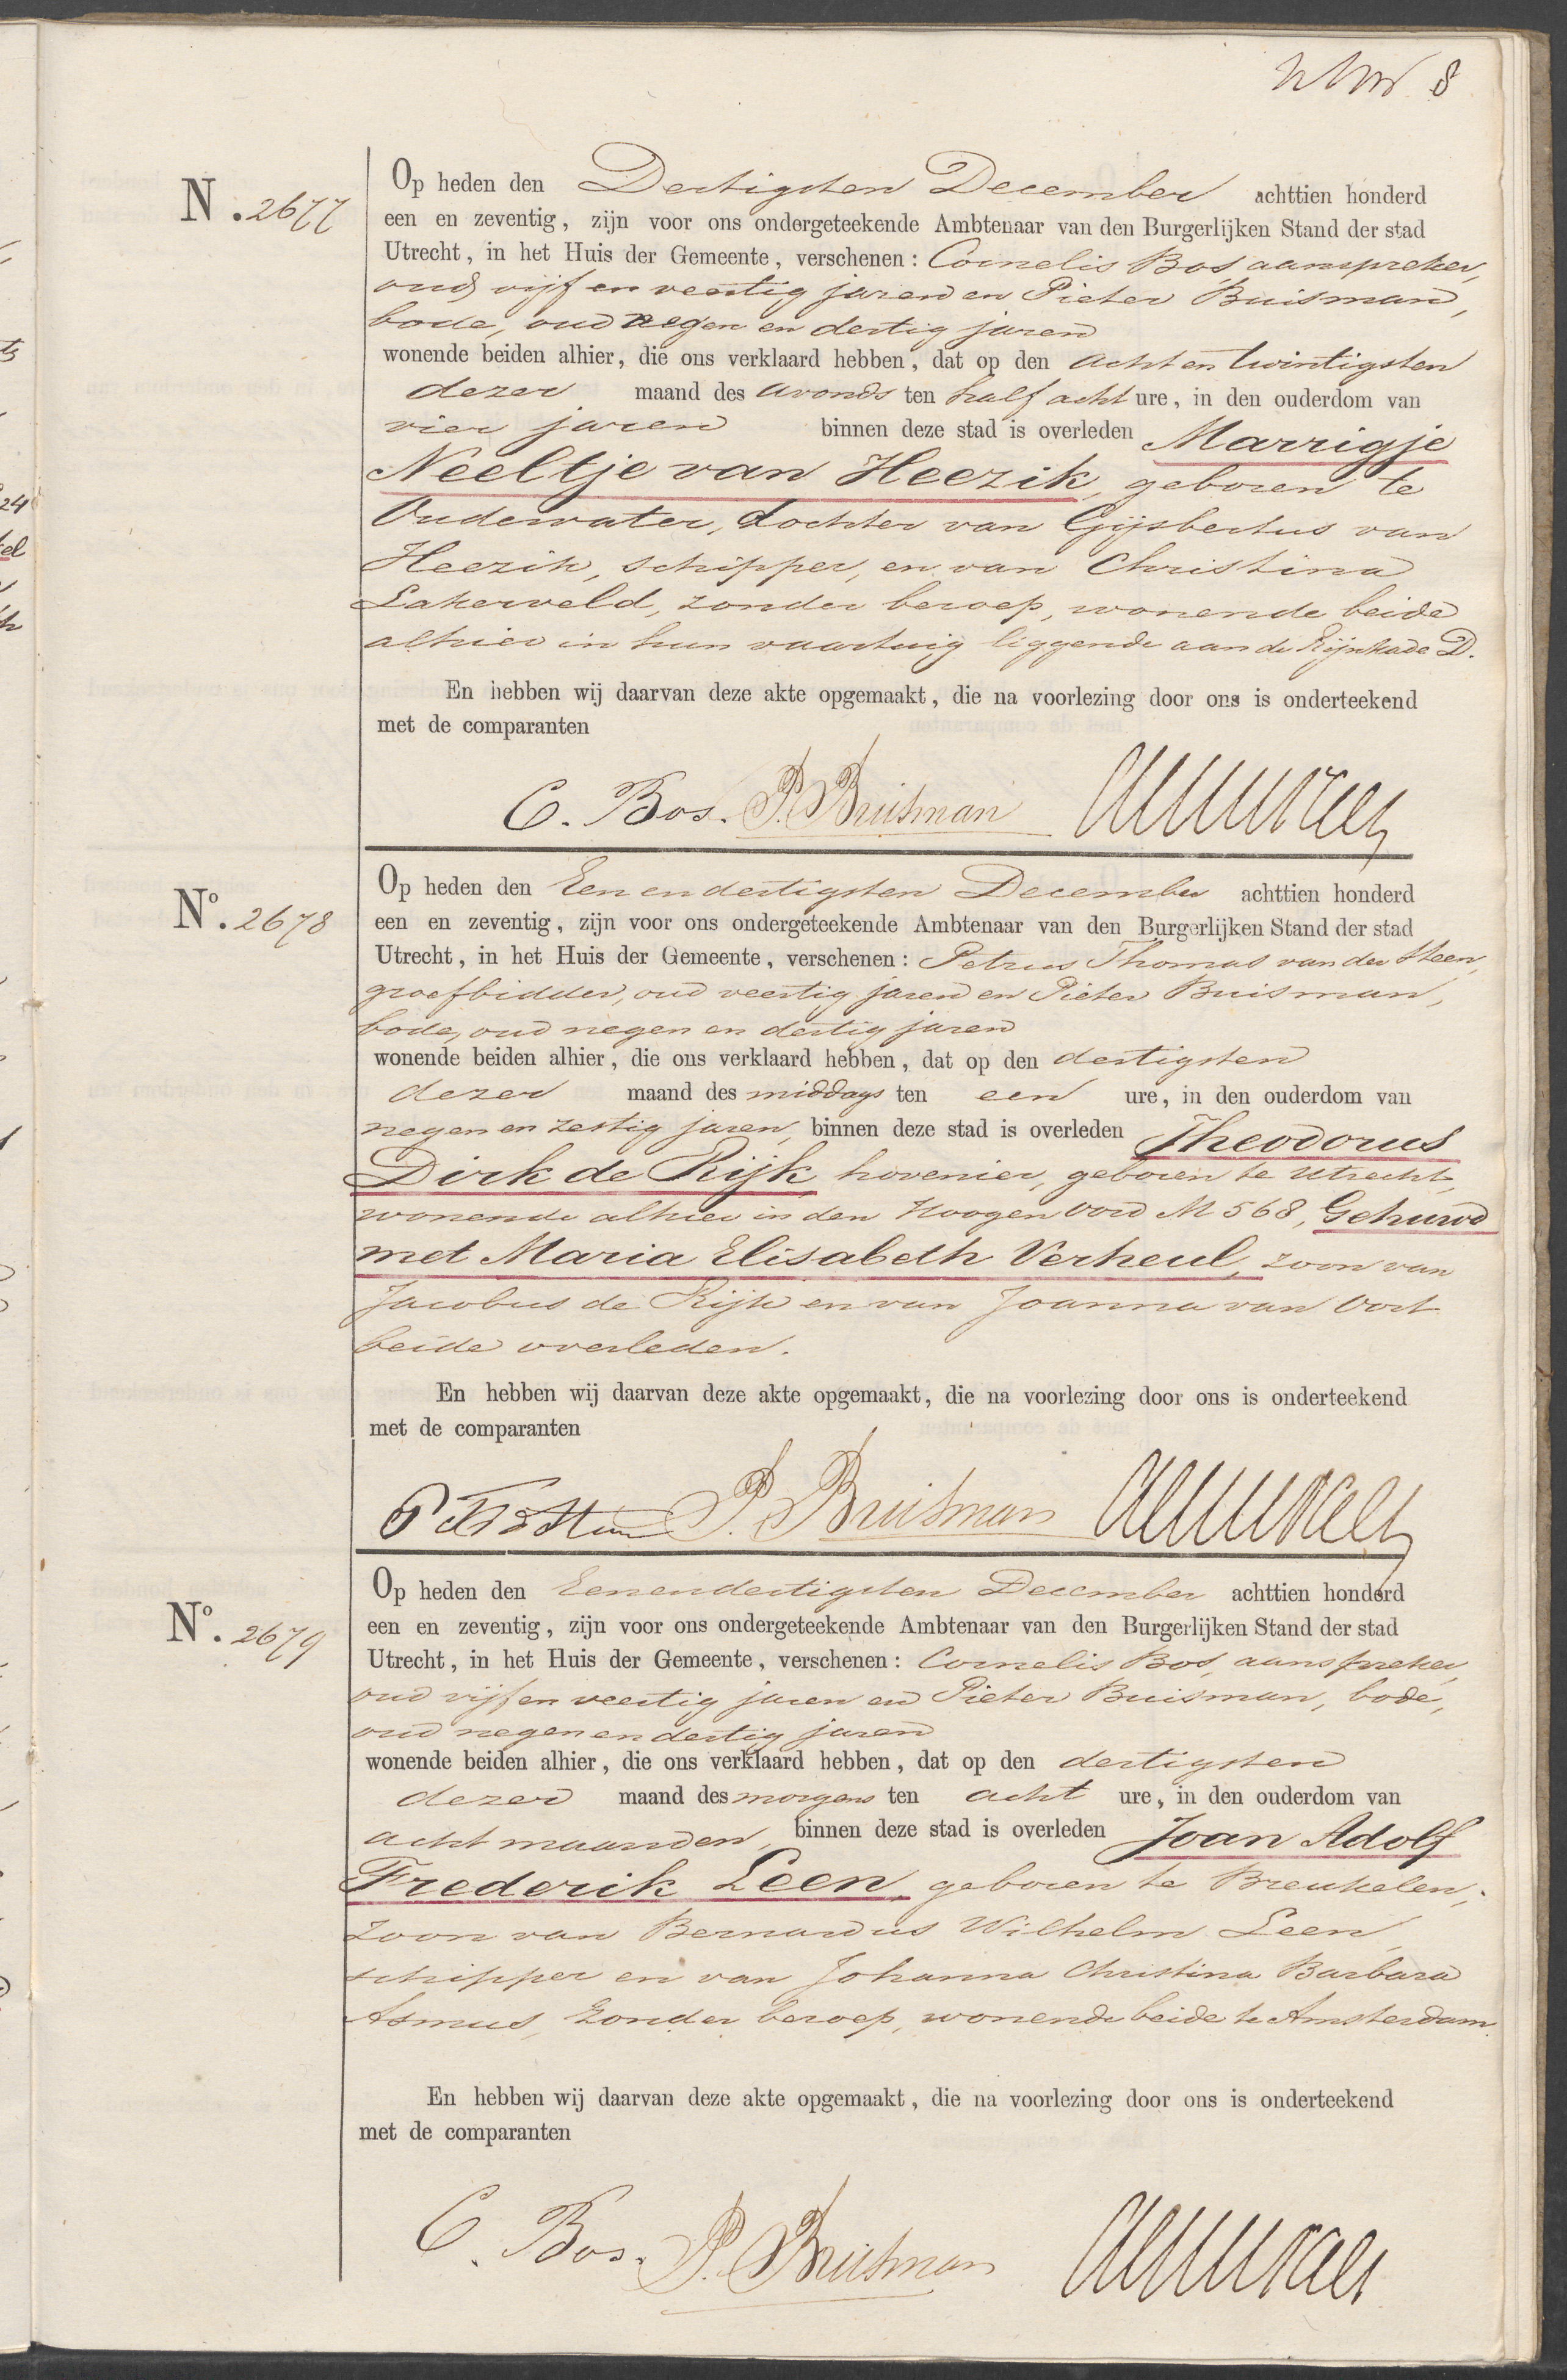 8
N . 2677
Op heden den Dertigsten December achttien honderd
een en zeventig, zijn voor ons ondergeteekende Ambtenaar van den Burgerlijken Stand der stad
Utrecht, in het Huis der Gemeente, verschenen: Cornelis Bos aanspreker,
oud vijf en veertig jaren en Pieter Buisman,
bode, oud negen en dertig jaren
wonende beiden alhier, die ons verklaard hebben, dat op den acht en twintigsten
dezer maand des avonds ten half acht ure, in den ouderdom van
vier jaren binnen deze stad is overleden Marrigje
Neeltje van Heezik, geboren te
Oudewater, dochter van Gijsbertus van
Heezik, schipper, en van Christina
Lakerveld, zonder beroep, wonende beide
alhier in hun vaartuig liggende aan de Rijnkade D.
En hebben wij daarvan deze akte opgemaakt, die na voorlezing door ons is onderteekend
met de comparanten
C. Bos. P. Buisman
No. 2678
Op heden den Eenendertigsten December achttien honderd
een en zeventig, zijn voor ons ondergeteekende Ambtenaar van den Burgerlijken Stand der stad
Utrecht, in het Huis der Gemeente, verschenen: Petrus Thomas van der Steen,
groefbidder, oud veertig jaren en Pieter Buisman,
bode, oud negen en dertig jaren
wonende beiden alhier, die ons verklaard hebben, dat op den dertigsten
dezer maand des middags ten een ure, in den ouderdom van
negen en zestig jaren, binnen deze stad is overleden Theodorus
Dirk de Rijk hovenier, geboren te Utrecht,
wonende alhier in den Hoogen Oord M 568, Gehuwd
met Maria Elisabeth Verheul, zoon van
Jacobus de Rijk en van Joanna van Oort
beide overleden.
En hebben wij daarvan deze akte opgemaakt, die na voorlezing door ons is onderteekend
met de comparanten
P. Buisman
No. 2679
Op heden den Eenendertigsten December achttien honderd
een en zeventig, zijn voor ons ondergeteekende Ambtenaar van den Burgerlijken Stand der stad
Utrecht, in het Huis der Gemeente, verschenen: Cornelis Bos, aanspreker,
oud vijf en veertig jaren en Pieter Buisman, bode,
oud negen en dertig jaren
wonende beiden alhier, die ons verklaard hebben, dat op den dertigsten
dezer maand des morgens ten acht ure, in den ouderdom van
acht maanden, binnen deze stad is overleden Joan Adolf
Frederik Leen, geboren te Breukelen,
zoon van Bernardus Wilhelm Leen,
schipper en van Johanna Christina Barbara
Asmus, zonder beroep, wonende beide te Amsterdam.
En hebben wij daarvan deze akte opgemaakt, die na voorlezing door ons is onderteekend
met de comparanten
C. Bos. P. Buisman